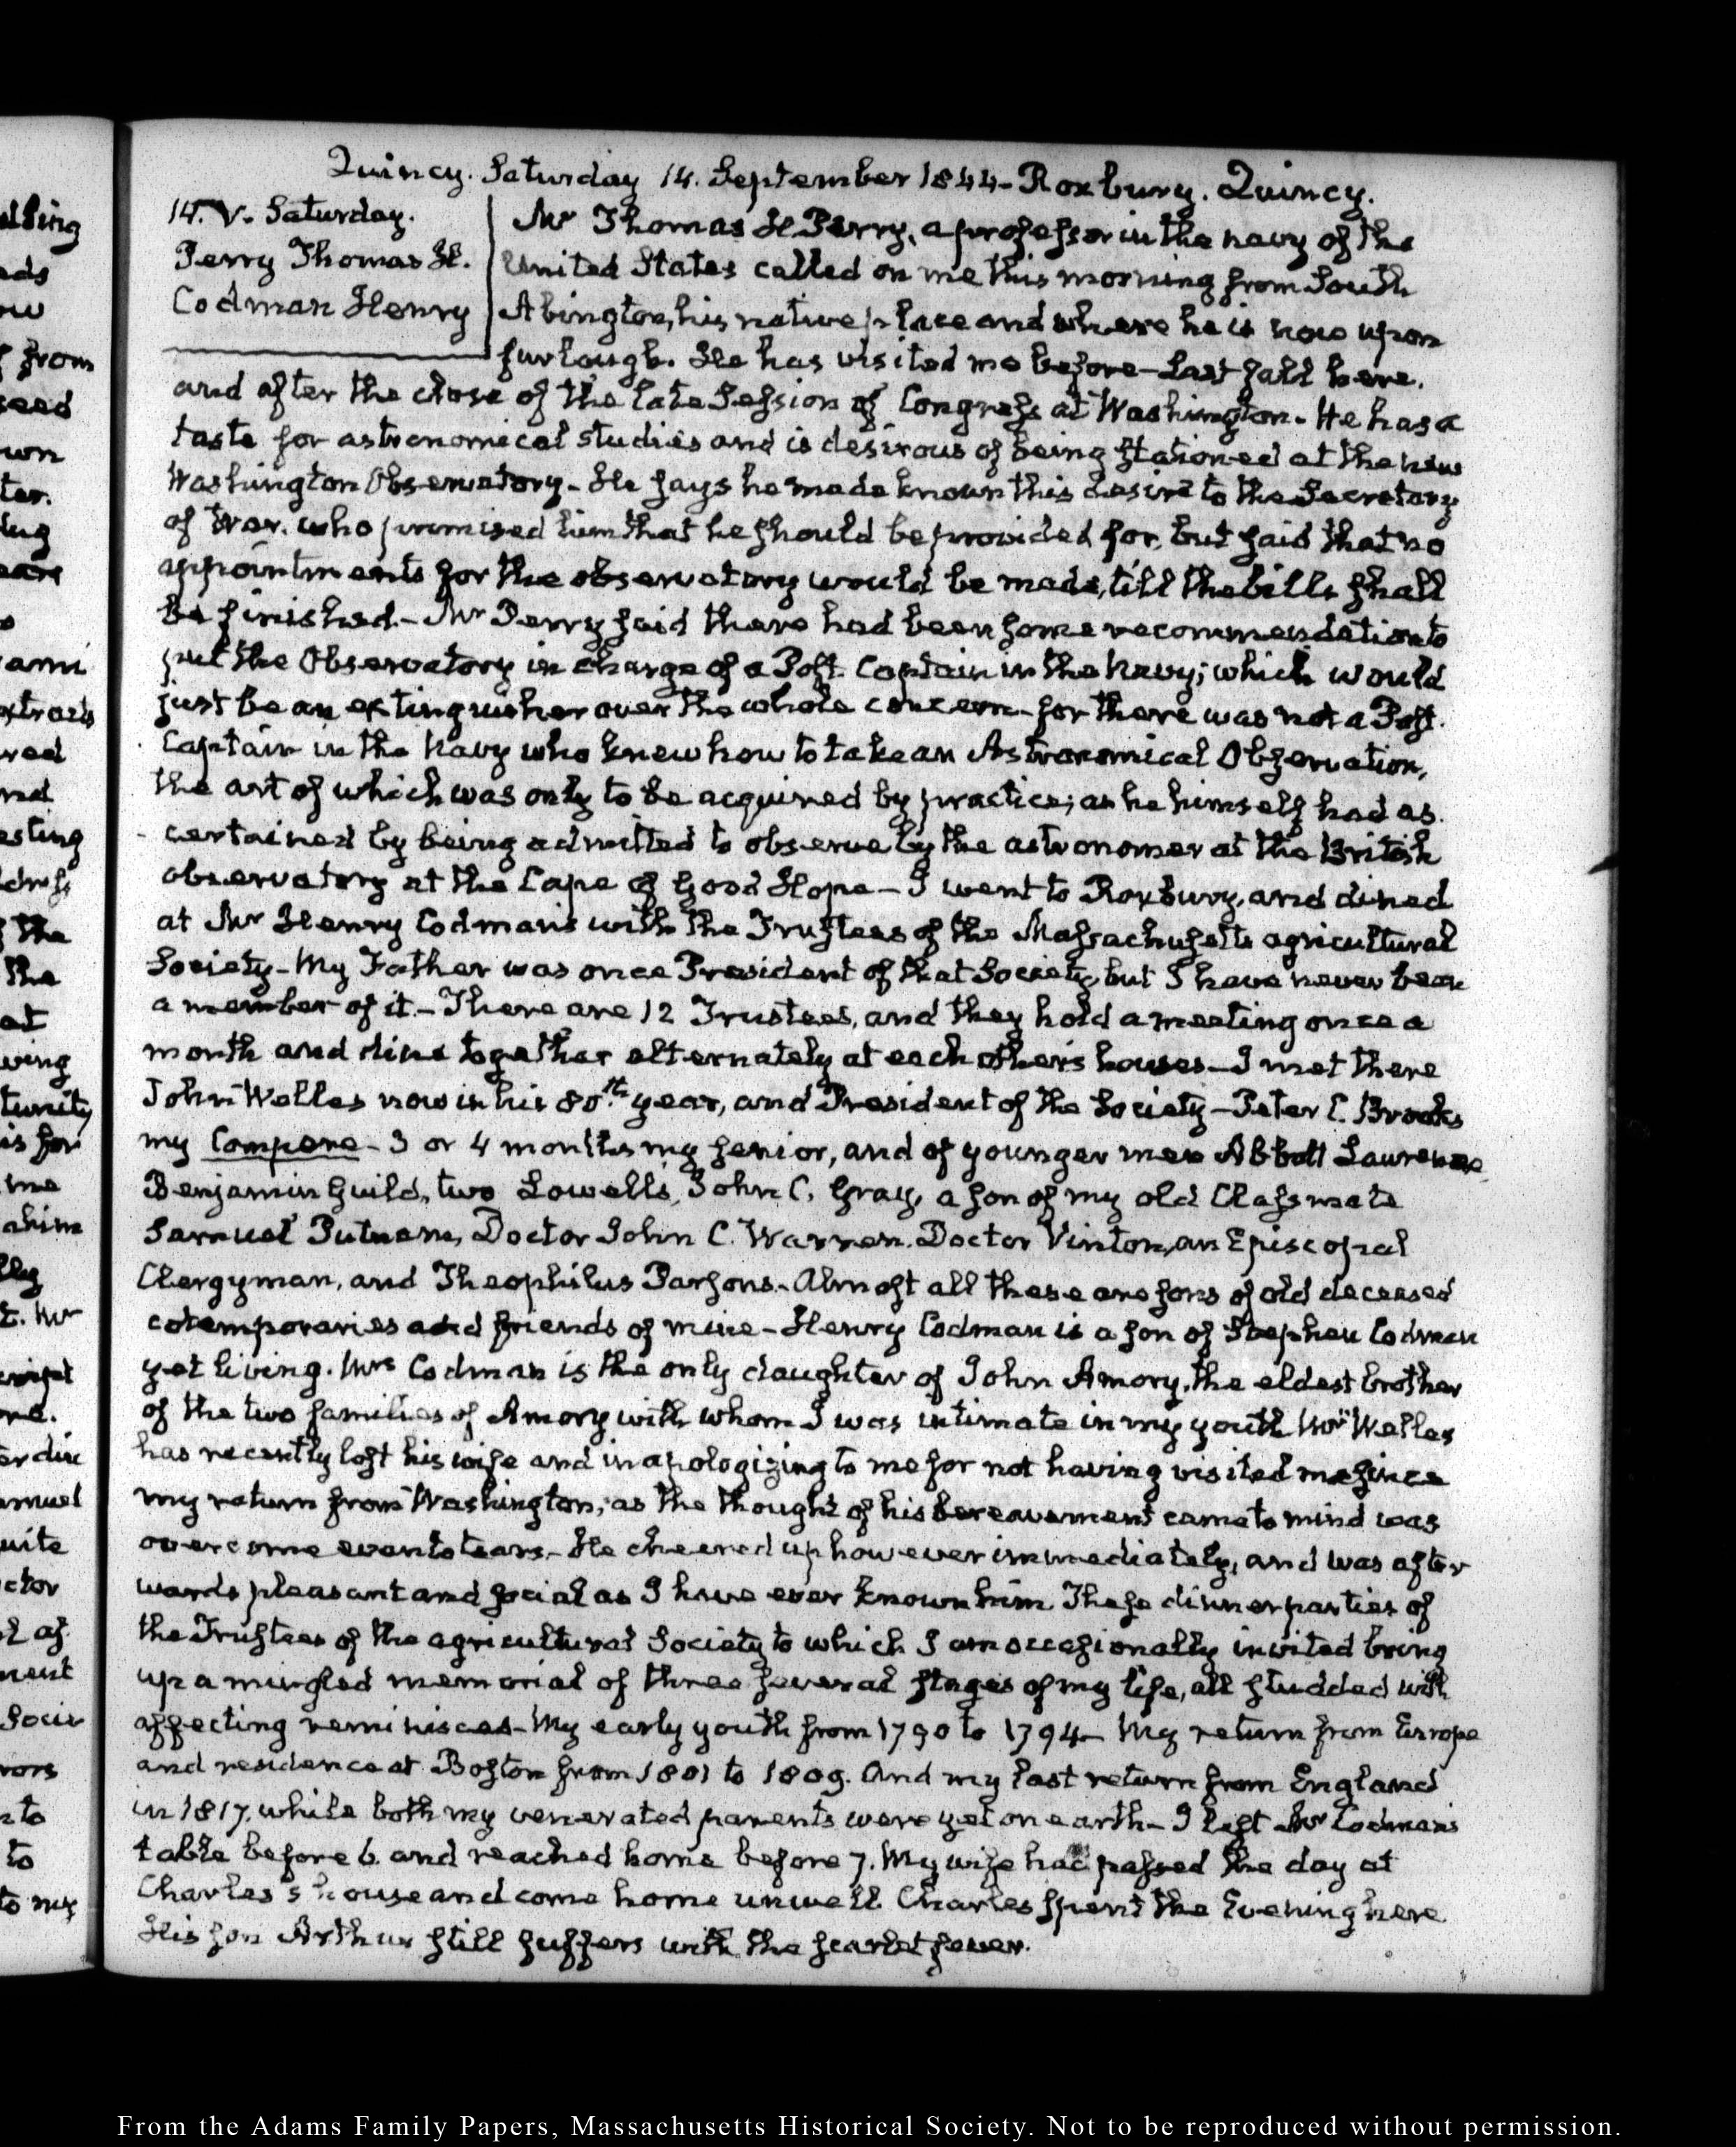 Quincy. Saturday 14. September 1844 - Roxbury. Quincy.
14. V. Saturday.
Perry Thomas H.
Codman Henry
Mr Thomas H Perry, a professor in the navy of the
United States called on me this morning from South
Abington, his native place and where he is now upon
furlough. He has visited me before - last fall here,
and after the close of the late Session of Congress at Washington - He has a
taste for astronomical studies and is desirous of being stationed at the new
Washington Observatory - He says he made known this desire to the Secretary
of War. who promised him that he should be provided for, but said that no
appointments for the observatory would be made, till the bills shall
be finished. - Mr Perry said there had been some recommendation to
put the Observatory in charge of a Post Captain in the Navy; which would
just be an extinguisher over the whole concern - for there was not a Post.
Captain in the Navy who knew how to take an Astronomical Observation,
the art of which was only to be acquired by practice; as he himself had as-
certained by being admitted to observe by the astronomer at the British
observatory at the Cape of Good Hope - I went to Roxbury, and dined
at Mr Henry Codman's with the Trustees of the Massachusetts agricultural
Society - My Father was once President of that Society, but I have never been
a member of it. - There are 12 Trustees, and they hold a meeting once a
month and dine together alternately at each other's houses - I met there
John Welles now in his 80th year, and President of the Society - Peter C. Brooks
my Compere - 3 or 4 months my senior, and of younger men Abbott Lawrence
Benjamin Guild, two Lowells, John C. Gray, a son of my old Classmate
Samuel Putnam, Doctor John C. Warren. Doctor Vinton, an Episcopal
Clergyman, and Theophilus Parsons. - Almost all these are sons of old deceased
cotemporaries and friends of mine - Henry Codman is a son of Stephen Codman
yet living. Mrs Codman is the only daughter of John Amory, the eldest brother
of the two families of Amory with whom I was intimate in my youth. Mr Welles
has recently lost his wife and in apologizing to me for not having visited me since
my return from Washington, as the thought of his bereavement came to mind was
overcome even to tears. - He cheered up however immediately, and was after
wards pleasant and social as I have ever known him. These dinner parties of
the Trustees of the agricultural Society to which I am occasionally invited bring
up a mingled memorial of three several stages of my life, all studded with
affecting reminisces - My early youth from 1790 to 1794 - My return from Europe
and residence at Boston from 1801 to 1809. And my last return from England
in 1817. while both my venerated parents were yet on earth - I left Mr Codman's
table before 6. and reached home before 7. My wife had passed the day at
Charles's house and come home unwell. Charles spent the Evening here
His son Arthur still suffers with the scarlet fever.
From the Adams Family Papers, Massachusetts Historical Society. Not to be reproduced without permission.